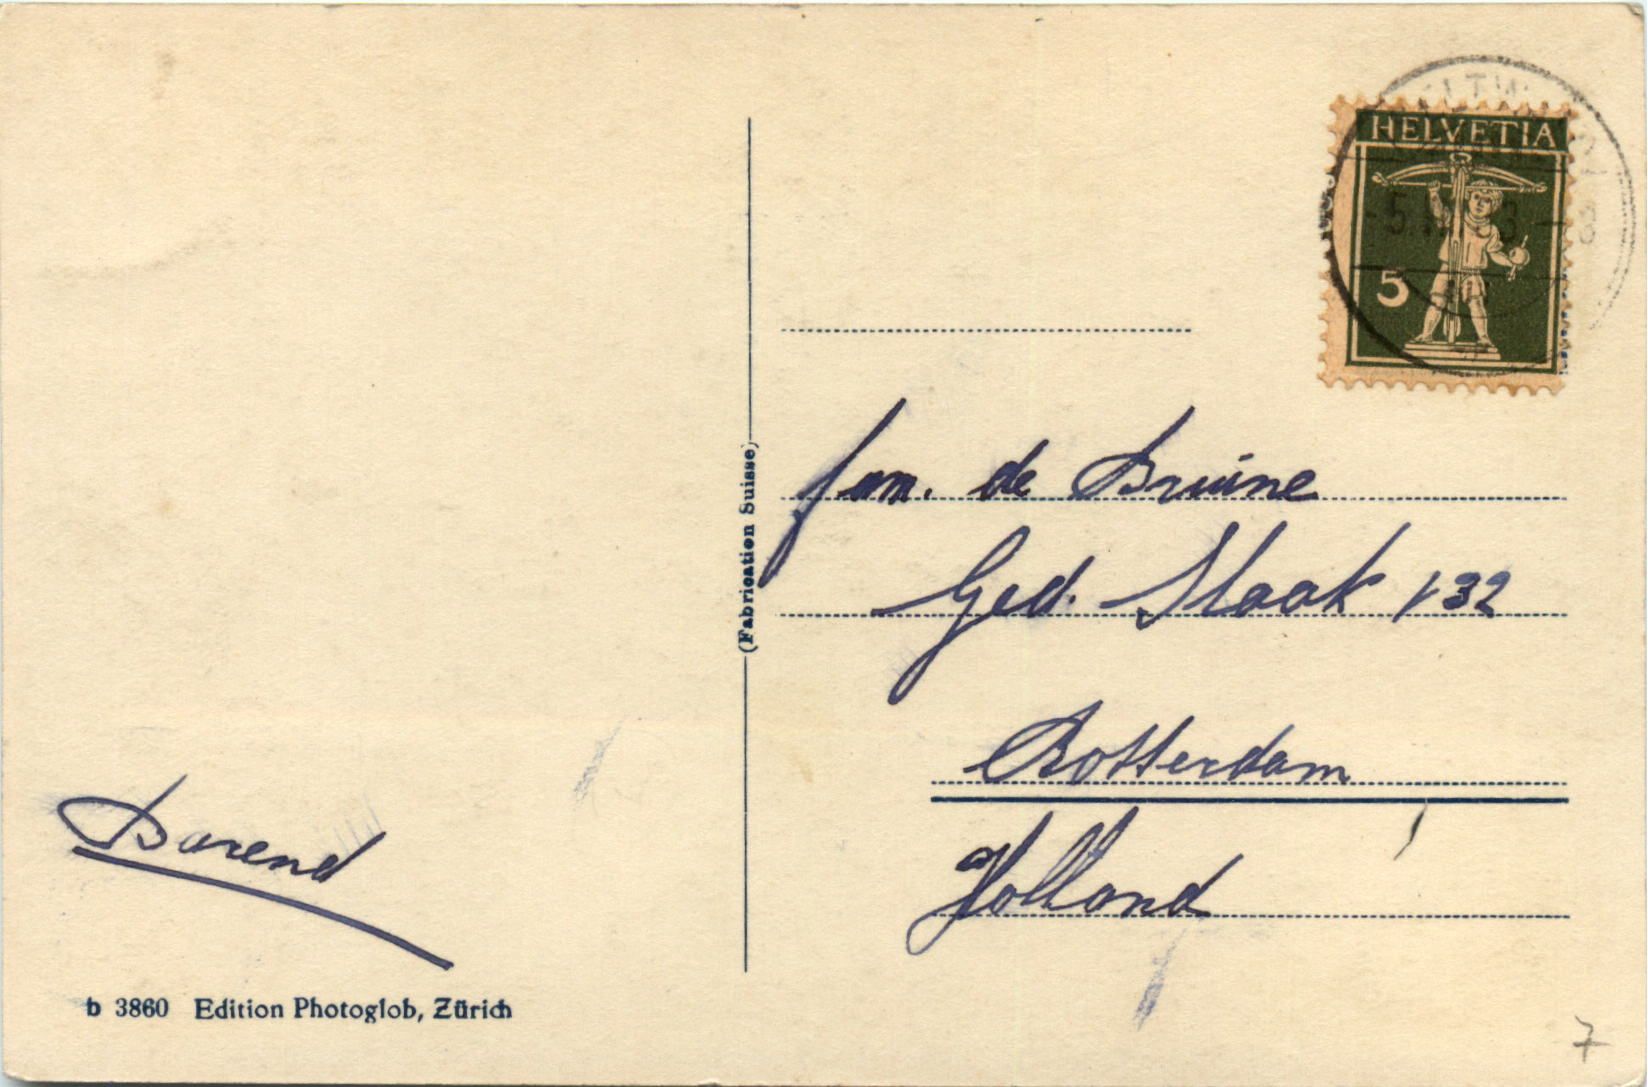 HELVETIA
5
fam. de Bruine
Ged. Slaak 132
Rotterdam
Holland
(Fabrication Suisse)
Barend
b 3860 Edition Photoglob, Zürich
7